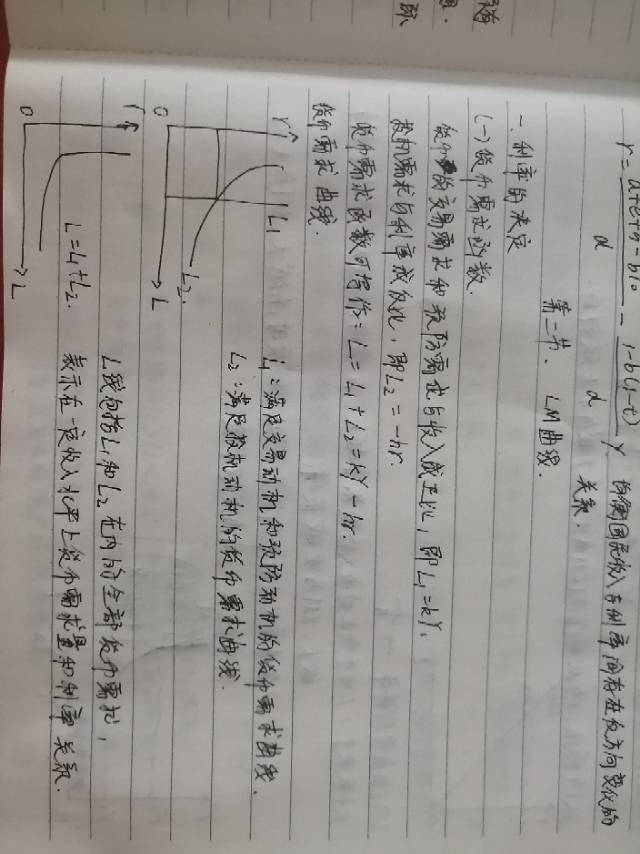 r = a+e+g-bT₀/d - 1-b(1-t)/d Y 均衡国民收入与利率间存在反方向变化的
关系.
第二节、LM曲线.
一.利率的决定
(一)货币需求函数.
货币的交易需求和预防需求与收入成正比,即L₁=kY.
投机需求与利率成反比,即L₂=-hr.
货币需求函数可写作:L=L₁+L₂=kY-hr.
货币需求曲线.
r L₁
L₂.
O L
L₁:满足交易动机和预防动机的货币需求曲线.
L₂:满足投机动机的货币需求曲线.
r
L=L₁+L₂.
O L
L线包括L₁和L₂在内的全部货币需求,
表示在一定收入水平上货币需求量和利率关系.